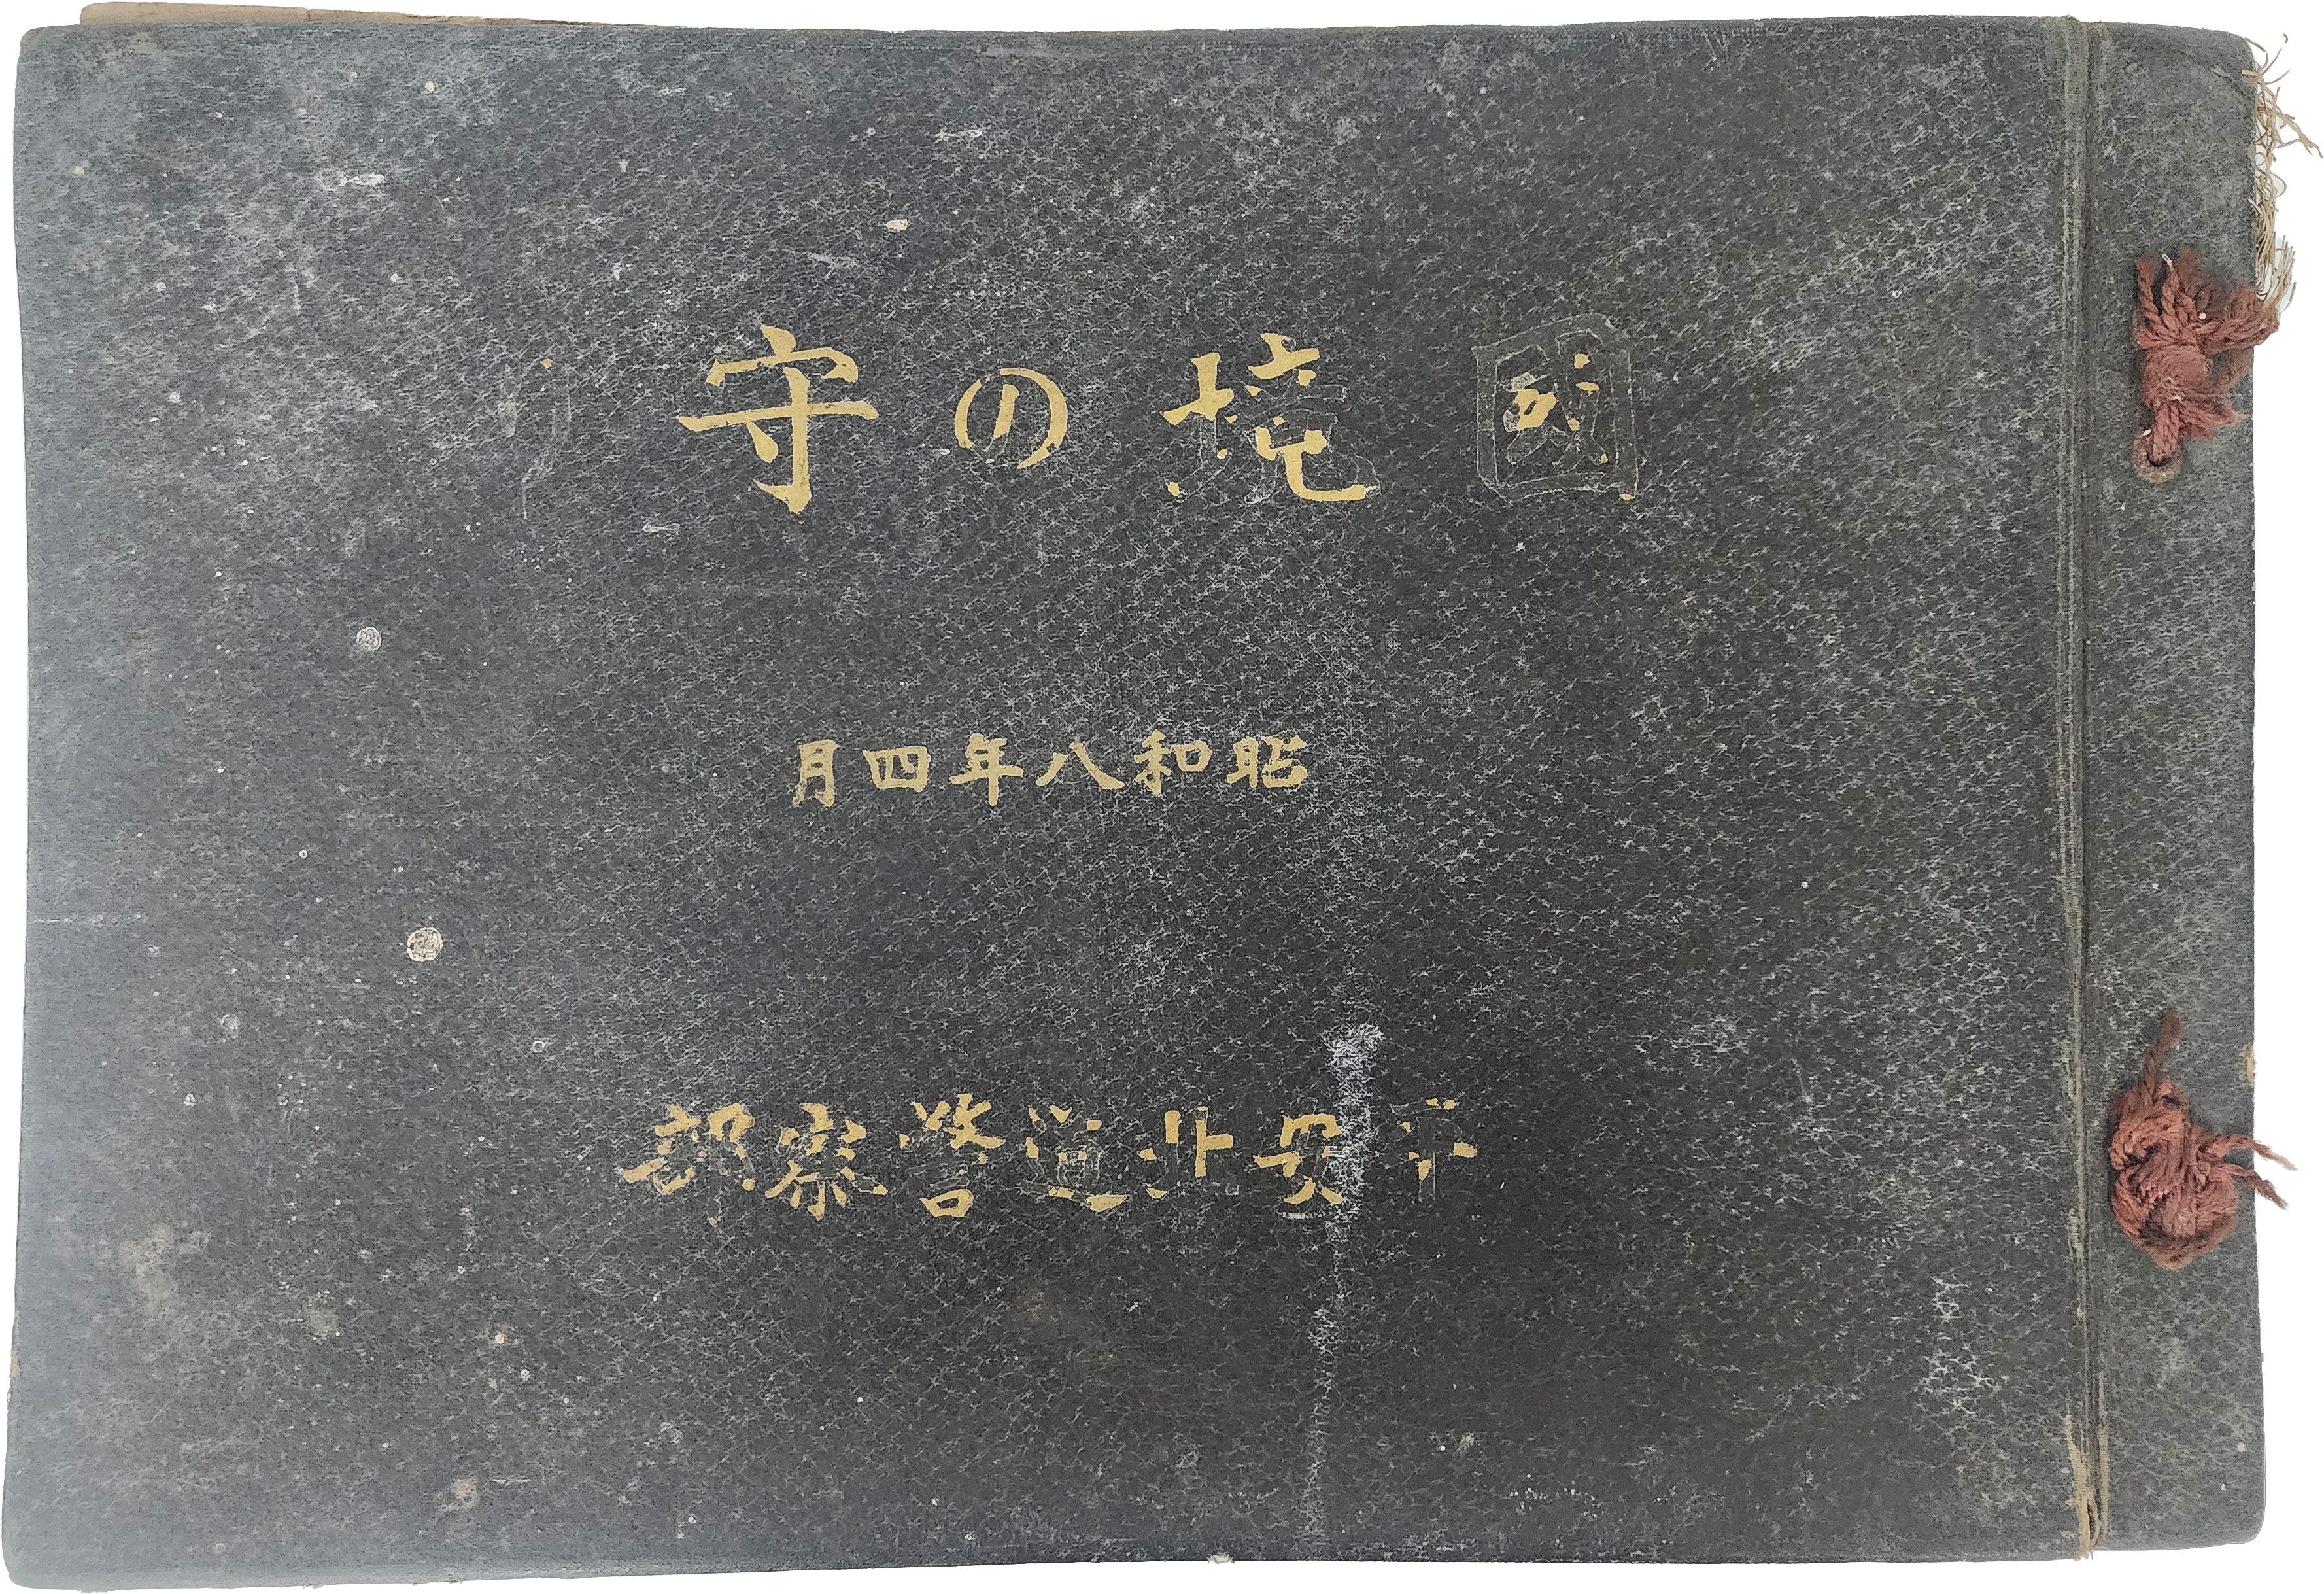 國境の守り
昭和八年四月
平安北道警察部